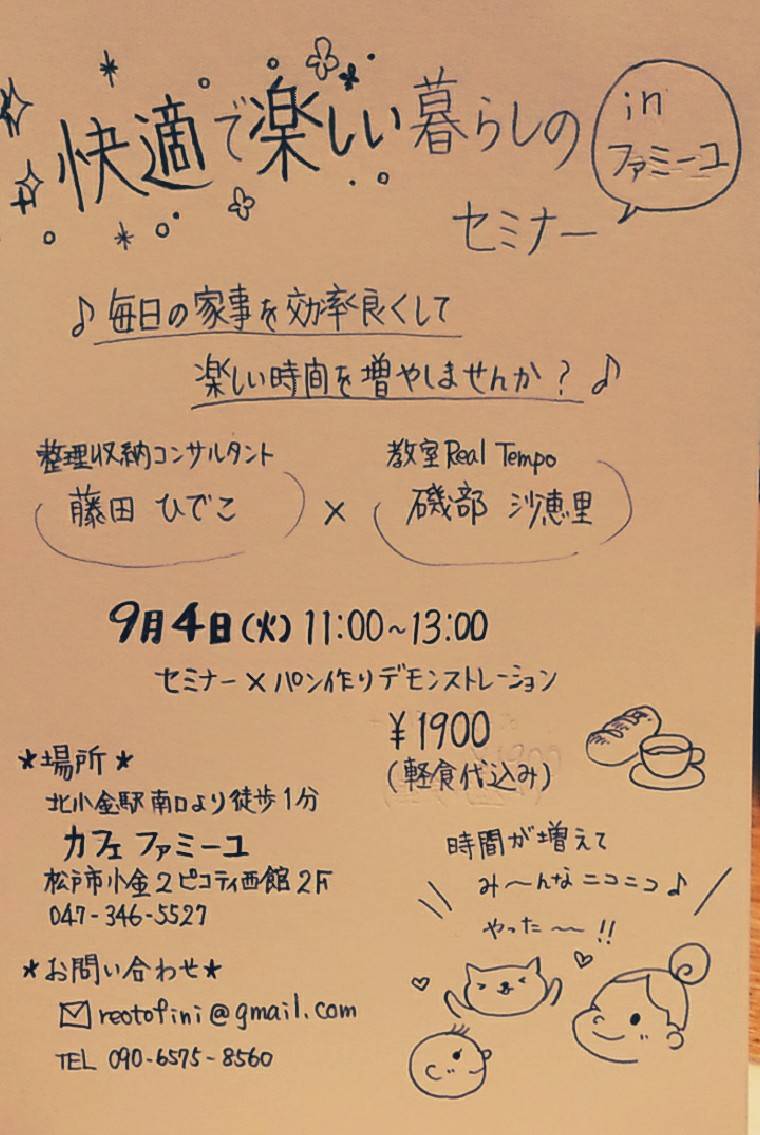 快適で楽しい暮らしの
in
ファミーユ
セミナー
♪毎日の家事を効率良くして
楽しい時間を増やしませんか?♪
整理収納コンサルタント
藤田 ひでこ
×
教室Real Tempo
磯部 沙恵里
9月4日(火) 11:00~13:00
セミナー×パン作りデモンストレーション
¥1900
(軽食代込み)
*場所*
北小金駅南口より徒歩1分
カフェ ファミーユ
松戸市小金2ピコティ西館2F
047-346-5527
*お問い合わせ*
reotofini@gmail.com
TEL 090-6575-8560
時間が増えて
み〜んなニコニコ♪
やった〜〜!!